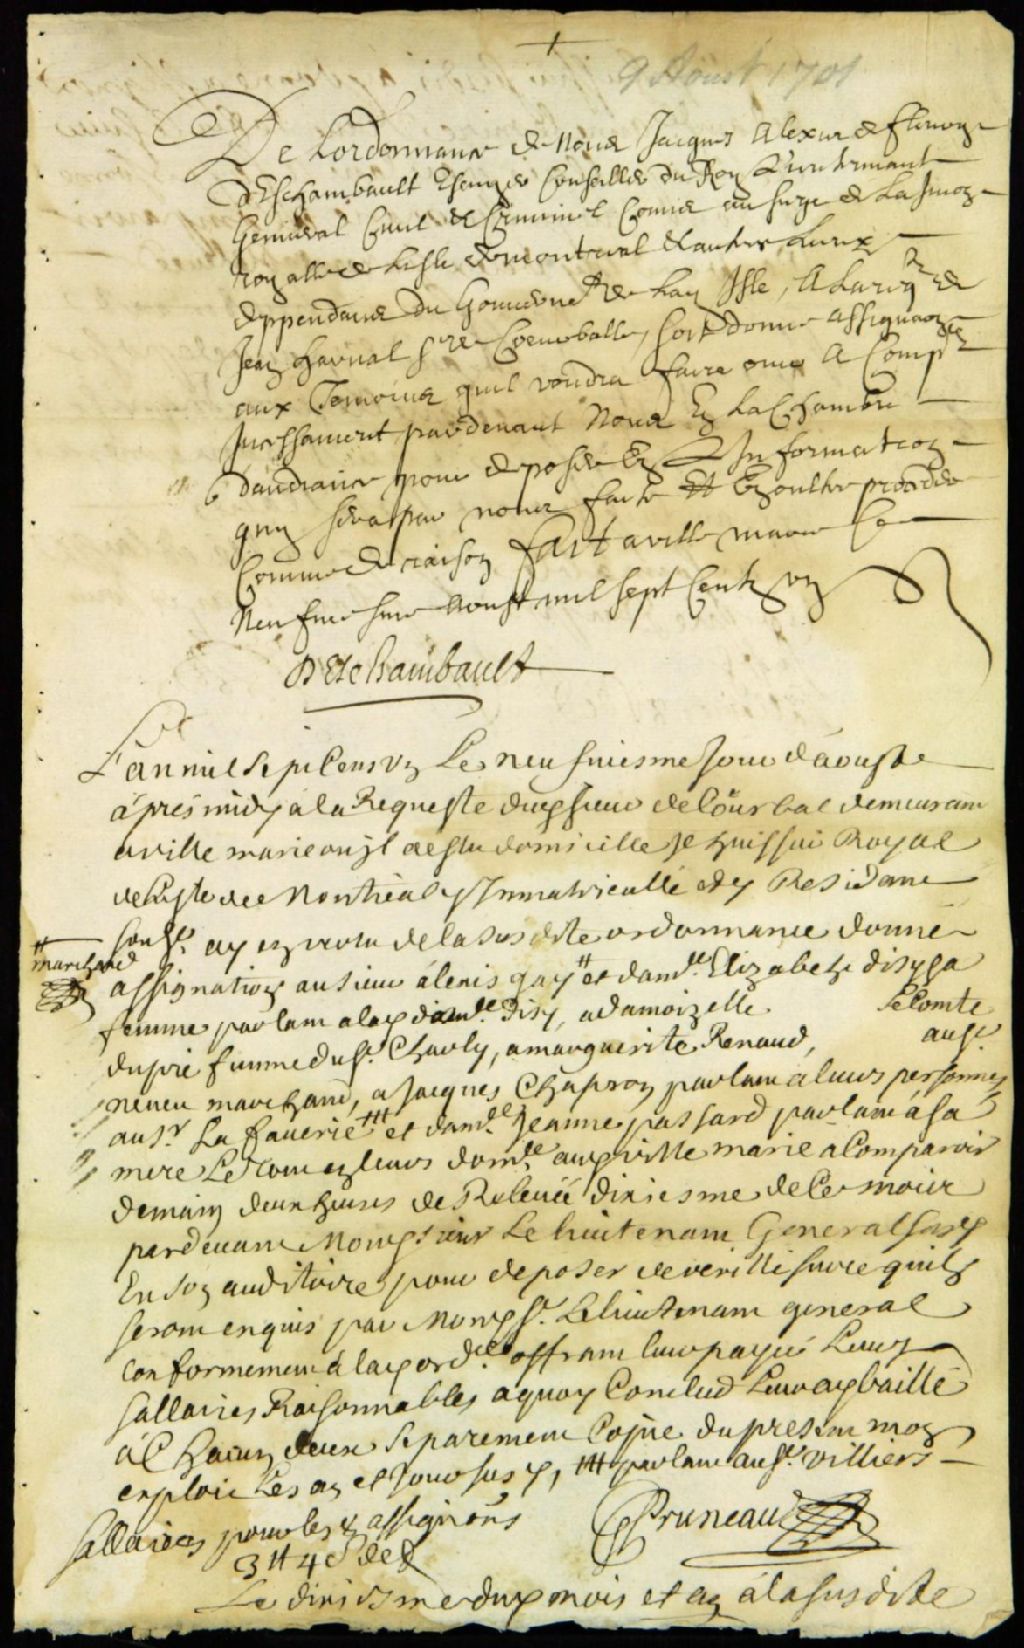 9 Aoust 1701
De Lordonnance de Nous Jacques Alexis de fleury
dEschambault Escuyer Conseiller du Roy Lieutenant
General Civil & Criminel Comis au siege de La
royalle de Lisle de montreal & autres Lieux
deppendans du Gouvernemt de Lad Isle, A La reqte de
Jean sr de soit donné assignaon
aux Temoins quil voudra faire ouir A Compr
Incessament pardevant Nous En La Chambre
daudiance pour deposer En Linformation
quy sera par nous faite Et En oultre proceder
Comme de raison fait a ville marie Ce
Neufviesme aoust mil sept Cents un
DEschambault
L'an mil sept Cens un Le neufviesme Jour d'aouste
apres midy a la Requeste dud sieur de Courbal demeurant
aville marie ou il a eslu domicille Je huissier Royal
de Lisle de Montreal y Inmatriculle & y Residant
soubsne ay en vertu de la susdite ordonnance donné
assignation au sieur alexis gay # et damlle Elizabeth disy sa
# marchand
femme parlant a lad damlle disy, a damoizelle LeComte
dupré femme du sr Charly, a marguerite Renaud, au sr
neveu marchand, a Jacques Chapron parlant a leurs personnes
au sr La faverie ### et damlle Jeanne passard parlant a sa
mere Le tout en leurs domlle aud ville marie a Comparoir
demain deux heures de Relevée dixiesme de Ce mois
pardevant Mond sieur Le lieutenant General susd
En son auditoire pour deposer de verité sur ce quils
seront enquis par Mond sr. Le lieutenant general
Conformement a lad ordce offrant leur payer Leurs
sallaires Raisonnables a quoy Conclud Leur ay baillé
a Chacun deux separement Copie du present mon
exploit Les an et Jour susd, ### parlant au sr. villiers
Pruneau
Sallaires pour les assignons
3 # 4 s de
Le dixiesme dud mois et an a la susdite